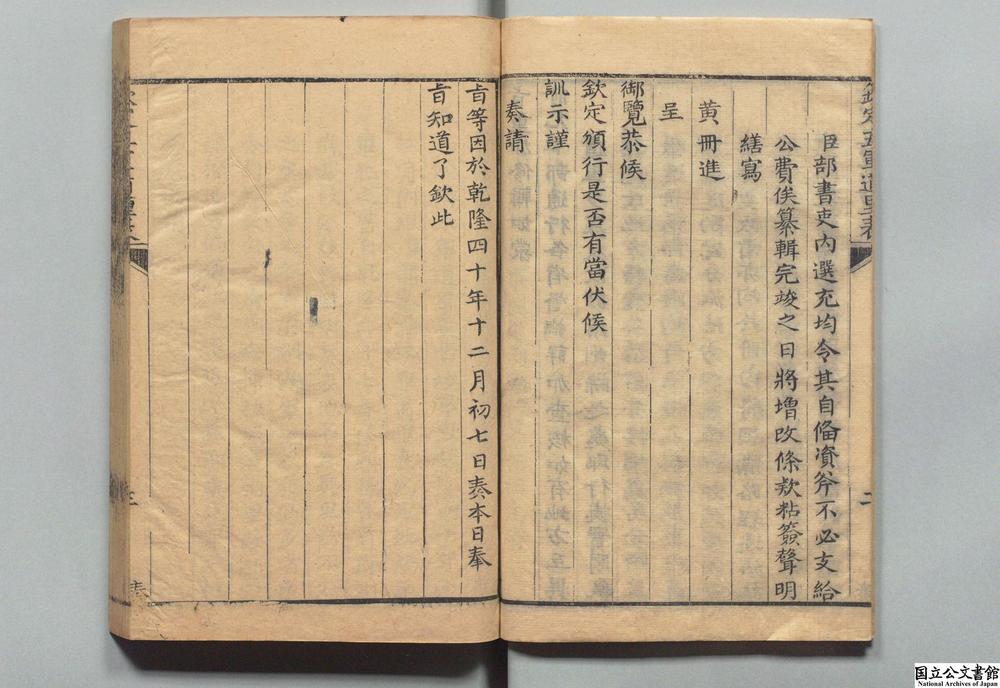 欽定五軍道里表
二
臣部書吏內選充均令其自偹資斧不必支給
公費俟纂輯完竣之日將增改條欵粘簽聲明
繕寫
黃冊進
呈
御覽恭候
欽定頒行是否有當伏候
訓示謹
奏請
旨等因於乾隆四十年十二月初七日奏本日奉
旨知道了欽此
三
国立公文書館
National Archives of Japan